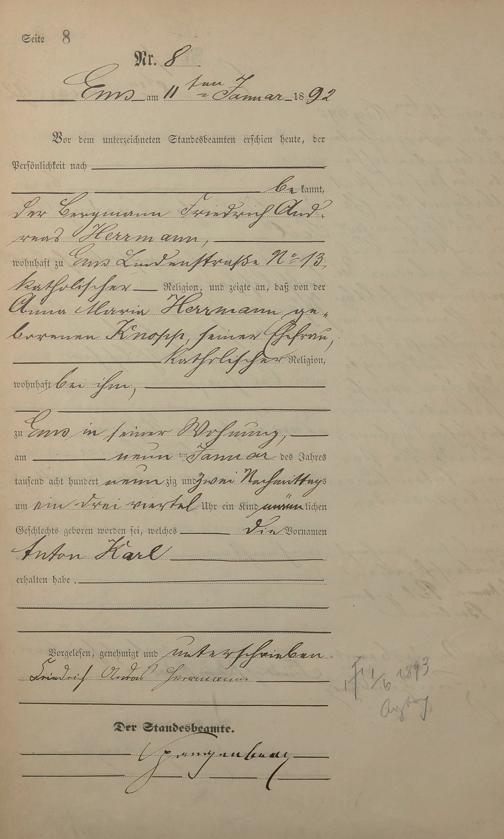 Seite 8
Nr. 8
Ems am 11ten Januar 1892
Vor dem unterzeichneten Standesbeamten erschien heute, der
Persönlichkeit nach
bekannt,
der Bergmann Friedrich And-
reas Herrmann,
wohnhaft zu Ems Lindenstraße No 13,
katholischer Religion, und zeigte an, daß von der
Anna Maria Herrmann ge-
borenen Knopp, seiner Ehefrau,
katholischer Religion,
wohnhaft bei ihm,
zu Ems in seiner Wohnung,
am neun ten Januar des Jahres
tausend acht hundert neunzig und zwei Nachmittags
um ein drei viertel Uhr ein Kind männlichen
Geschlechts geboren worden sei, welches die Vornamen
Anton Karl
erhalten habe.
Vorgelesen, genehmigt und unterschrieben
Friedrich Andreas Herrmann
1/6 1893
Der Standesbeamte.
Spangenberg